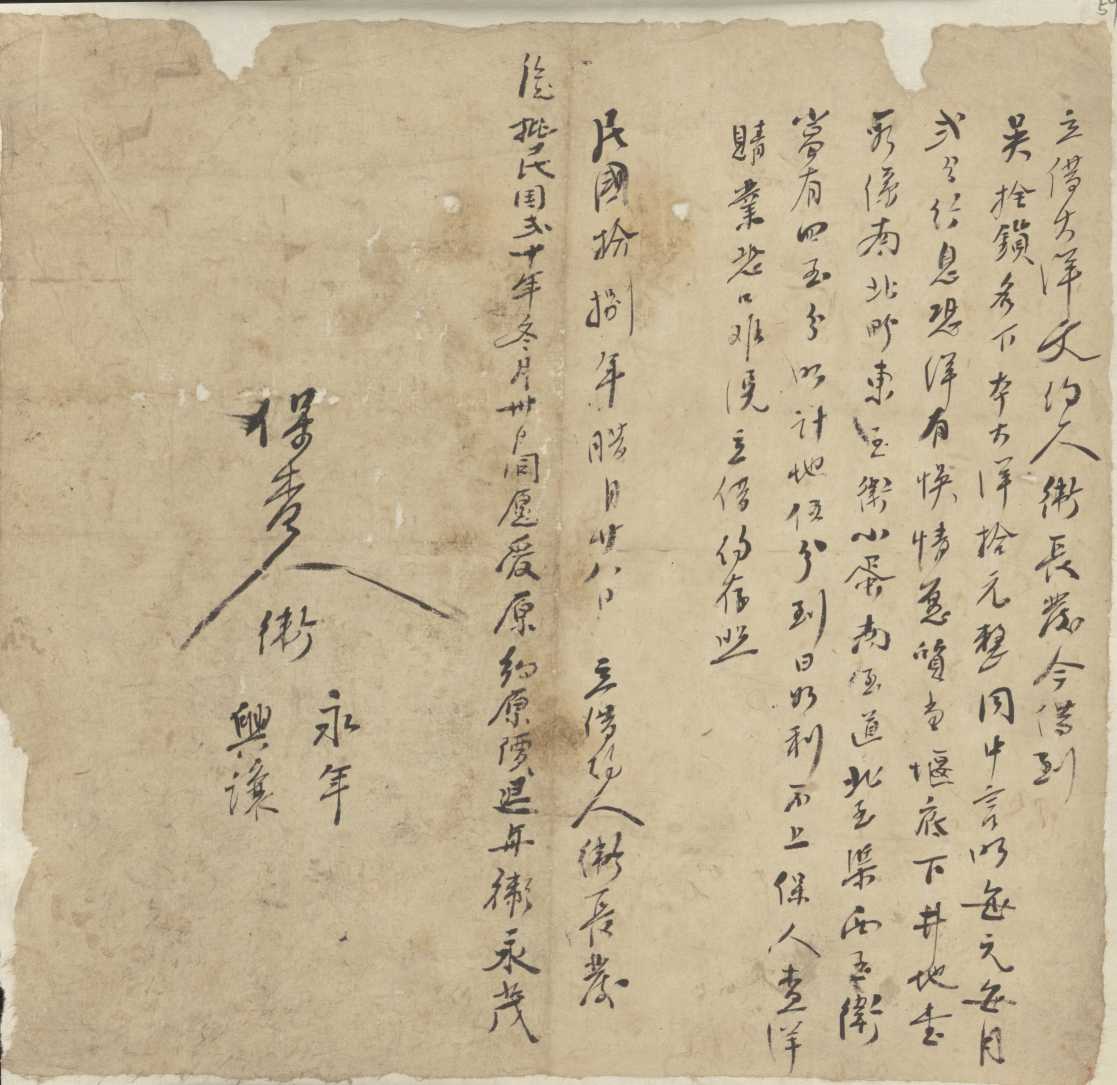 立借大洋文约人衛長發今借到
吴拴鎖名下本大洋拾元整同中言明每元每月
弍分行息恐洋有悞情愿質当堰底下井地壹
段係南北畛東至衛小蛋南至道北至渠西至衛
當有四至分明計地伍分到日如利不上保人查洋
賭業恐口难凭立借约存照
民國拾捌年腊月廿八日 立借约人衛長發
後批民国弍十年冬月卅日同愿爰原约原價退与衛永茂
保查人衛
永年
興讓